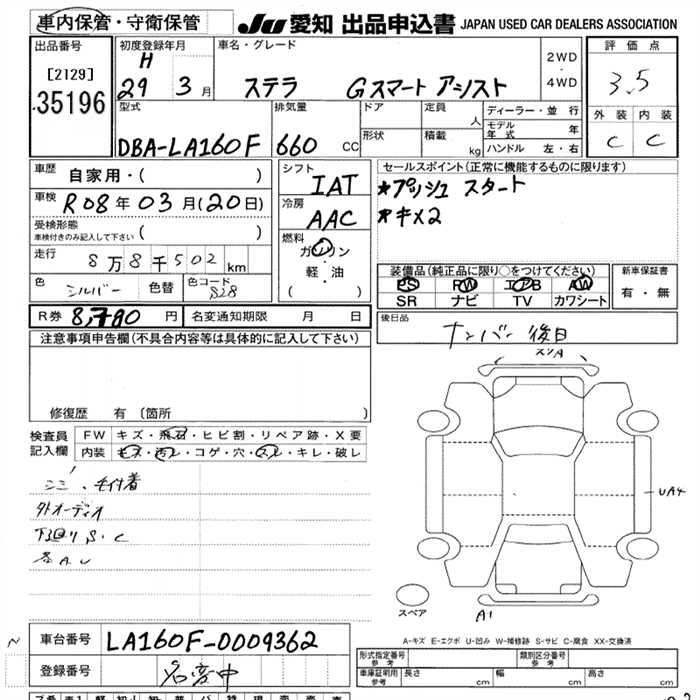 車内保管・守衛保管
JU 愛知 出品申込書 JAPAN USED CAR DEALERS ASSOCIATION
出品番号
[2129]
35196
初度登録年月
H
29 3月
車名・グレード
ステラ Gスマートアシスト
2WD
・
4WD
評価点
3.5
外装 内装
C C
型式
DBA-LA160F
排気量
660 CC
ドア
形状
定員
人
積載
kg
ディーラー・並行
モデル年式 年
ハンドル 左・右
車歴 自家用・( )
車検 R08年03月(20日)
受検形態
車検付きのみ記入して下さい ( )
走行 8万8千502km
色 シルバー 色替 色コード S28
シフト
IAT
冷房
AAC
燃料
ガソリン
・
軽・油
( )
セールスポイント(正常に機能するものに限ります)
★プッシュスタート
★キ×2
装備品(純正品に限り○をつけてください)
PS PW エアB AW
SR ナビ TV カワシート
新車保証書
有・無
R券 8,780円 名変通知期限 月 日
後日品
ナンバー後日
注意事項申告欄(不具合内容等は具体的に記入して下さい)
修復歴 有〔箇所 〕
検査員記入欄
FW キズ・飛石・ヒビ割・リペア跡・X要
内装 キズ・汚レ・コゲ・穴・スレ・キレ・破レ
外オーディオ
下回りS.C
UA4
A1
スペア
A-キズ E-エクボ U-凹み W-補修跡 S-サビ C-腐食 XX-交換済
N
車台番号 LA160F-0009362
登録番号 名変中
形式指定番号
参考
類別区分番号
参考
車庫証明用
参考
長さ cm 幅 cm 高さ cm